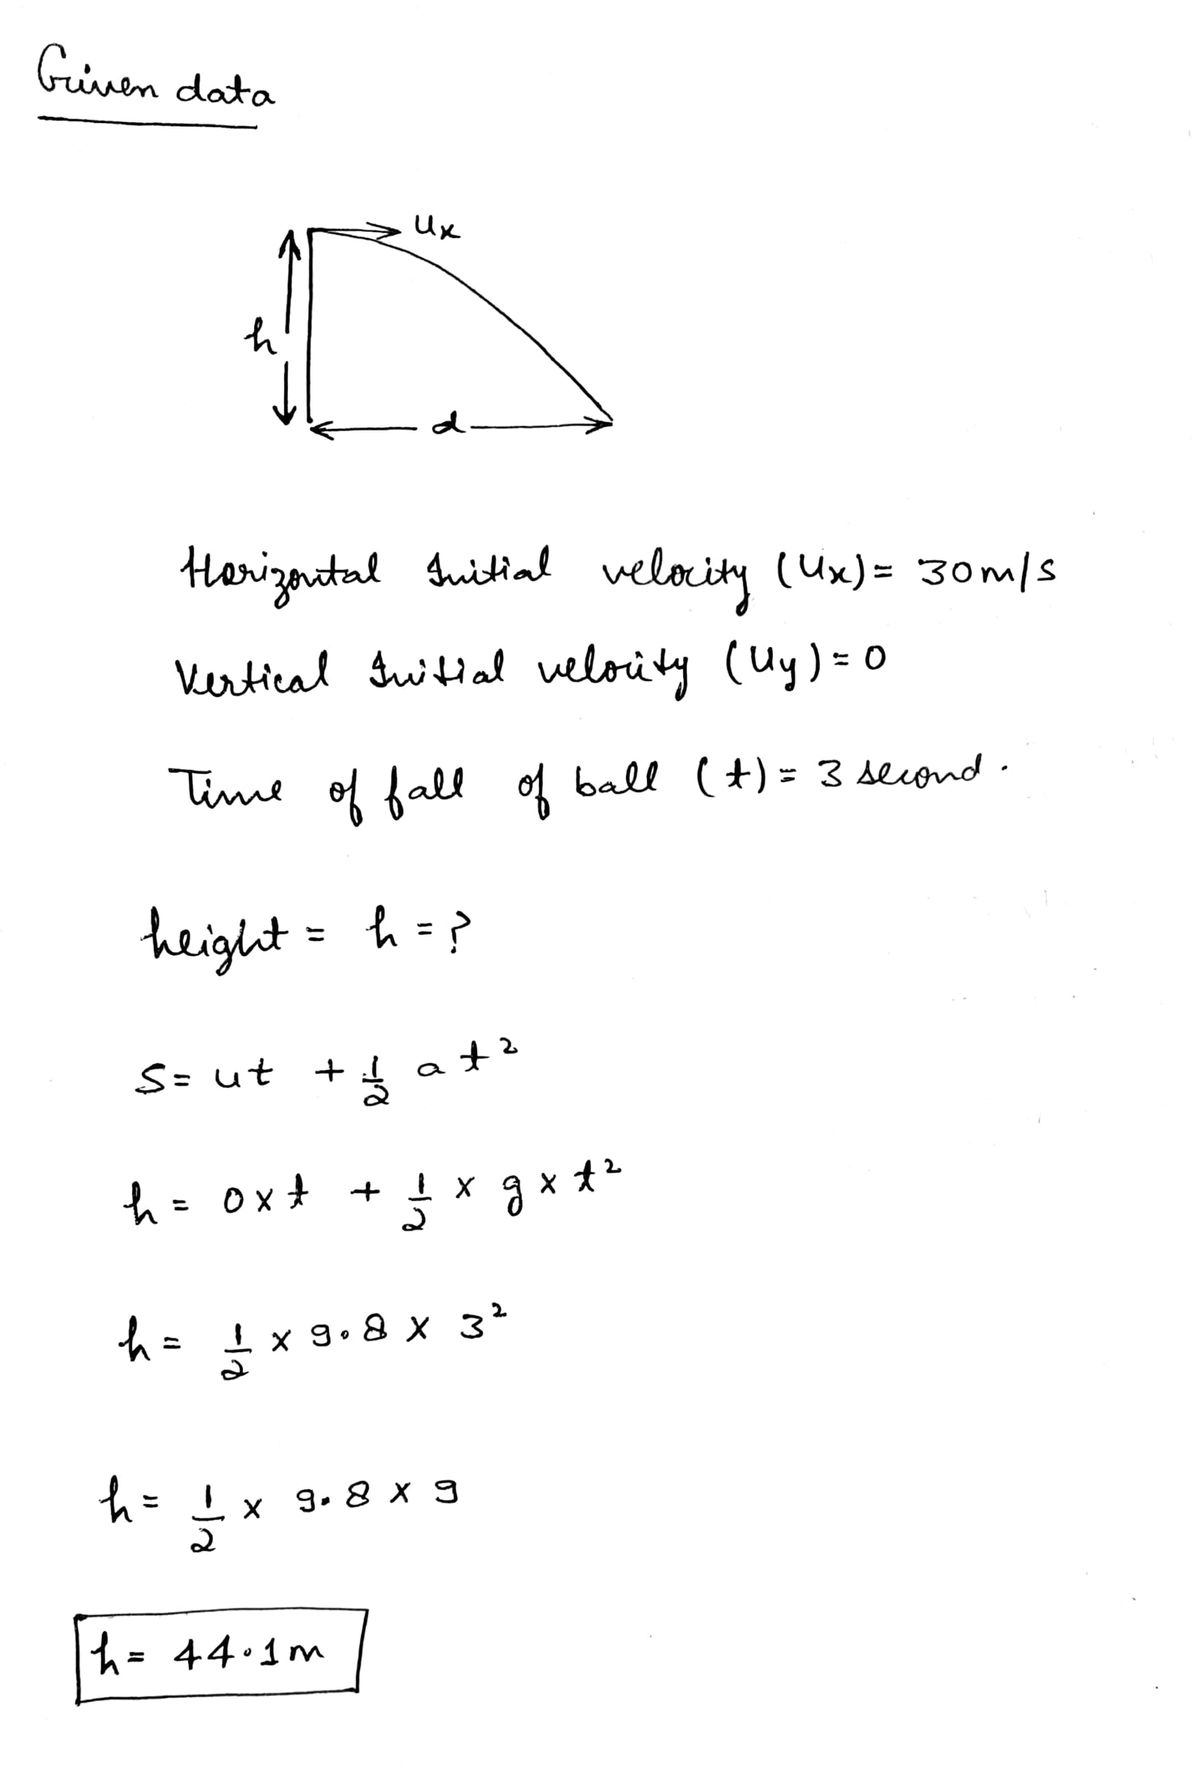 Given data
ux
h
d
Horizontal Initial velocity (ux) = 30m/s
Vertical Initial velocity (uy) = 0
Time of fall of ball (t) = 3 second.
height = h = ?
S = ut + 1/2 at²
h = 0 x t + 1/2 x g x t²
h = 1/2 x 9.8 x 3²
h = 1/2 x 9.8 x 9
h = 44.1m